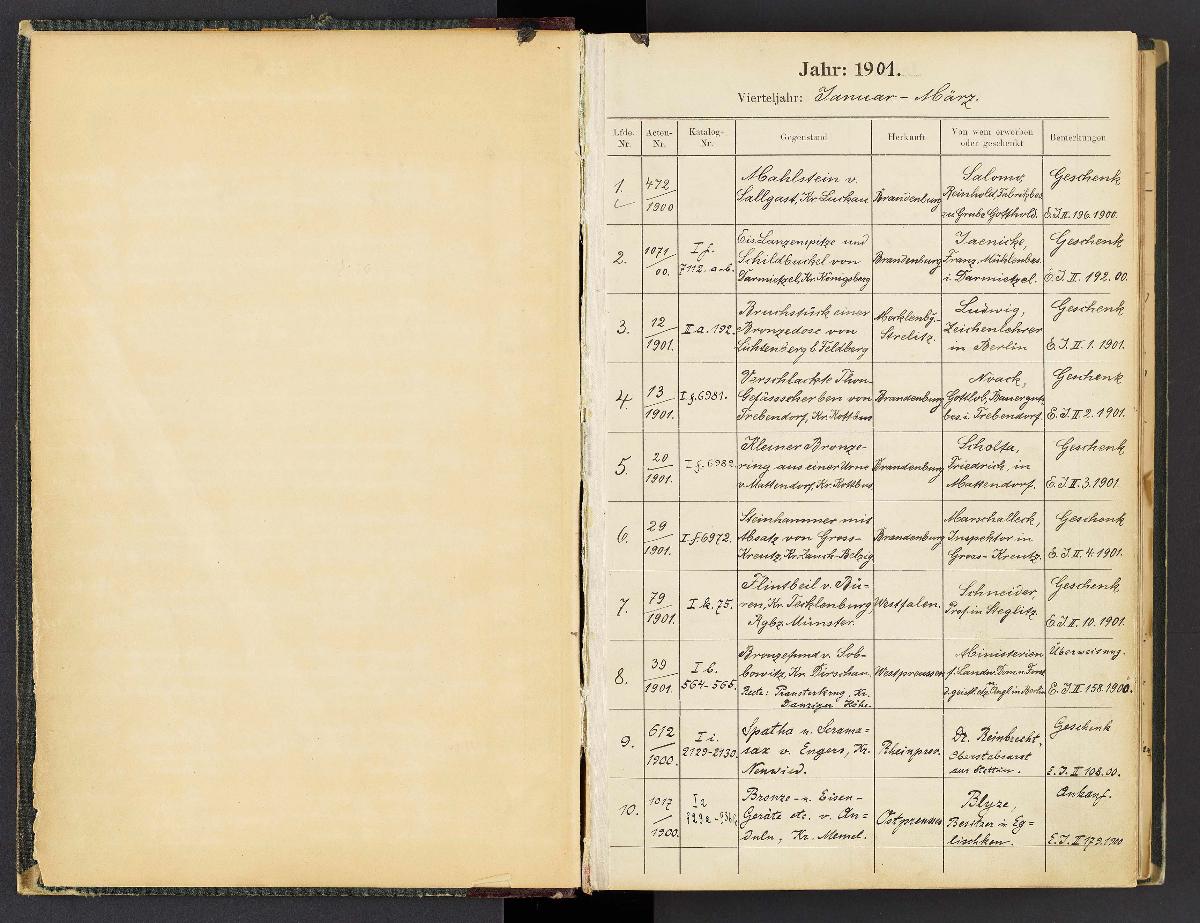 Jahr: 1901.
Vierteljahr: Januar - März.
Lfde. Nr. | Acten-Nr. | Katalog-Nr. | Gegenstand | Herkunft | Von wem erworben oder geschenkt | Bemerkungen
1. | 472/1900 | | Mahlstein v.
Sallgast, Kr. Luckau | Brandenburg | Salomo,
Reinhold, Fabrikbes.
zu Grube Gotthold. | Geschenk
E.J.II.196.1900.
2. | 1071/00. | I f.
7112.a-b. | Eis. Lanzenspitze und
Schildbuckel von
Darmietzel, Kr. Königsberg | Brandenburg | Jaenicke,
Franz, Mühlenbes.
i. Darmietzel. | Geschenk
E.J.II.192.00.
3. | 12/1901. | II a.192. | Bruchstück einer
Bronzedose von
Lichtenberg b. Feldberg | Mecklenbg.-
Strelitz. | Ludwig,
Zeichenlehrer
in Berlin | Geschenk
E.J.II.1.1901.
4. | 13/1901. | I f.6981. | Verschlackte Thon-
Gefässscherben von
Trebendorf, Kr. Kottbus | Brandenburg | Noack,
Gottlob, Bauerguts-
bes. i. Trebendorf. | Geschenk
E.J.II.2.1901.
5. | 20/1901. | I f.6982. | Kleiner Bronze-
ring aus einer Urne
v. Mattendorf, Kr. Kottbus | Brandenburg | Scholta,
Friedrich, in
Mattendorf. | Geschenk
E.J.II.3.1901
6. | 29/1901. | I f.6972. | Steinhammer mit
Absatz von Gross-
Kreutz, Kr. Zauch-Belzig | Brandenburg | Marschalleck,
Inspektor in
Gross-Kreutz. | Geschenk
E.J.II.4.1901.
7. | 79/1901. | I k.75. | Flintbeil v. Bü-
ren, Kr. Tecklenburg,
Rgbz. Münster. | Westfalen. | Schneider,
Prof. in Steglitz. | Geschenk
E.J.II.10.1901.
8. | 39/1901. | I b.
564-565. | Bronzefund v. Sob-
bowitz, Kr. Dirschau.
Kr.
Danziger Höhe. | Westpreussen | Ministerien
f. Landw. Dom. u. Forst.
d. geistl. etz. Angl. in Berlin | Überweisung.
E.J.II.158.1900.
9. | 612/1900. | I i.
2129-2130. | Spatha u. Scrama-
sax v. Engers, Kr.
Neuwied. | Rheinprov. | Dr. Reinbrecht,
Oberstabsarzt
aus Stettin. | Geschenk
E.J.II 108.00.
10. | 1017/1900. | Bronze- u. Eisen-
Geräte etc. v. An-
duln, Kr. Memel. | Ostpreussen | Blyze,
Besitzer in Eg-
lischken. | Ankauf.
E.J.II 179.1900